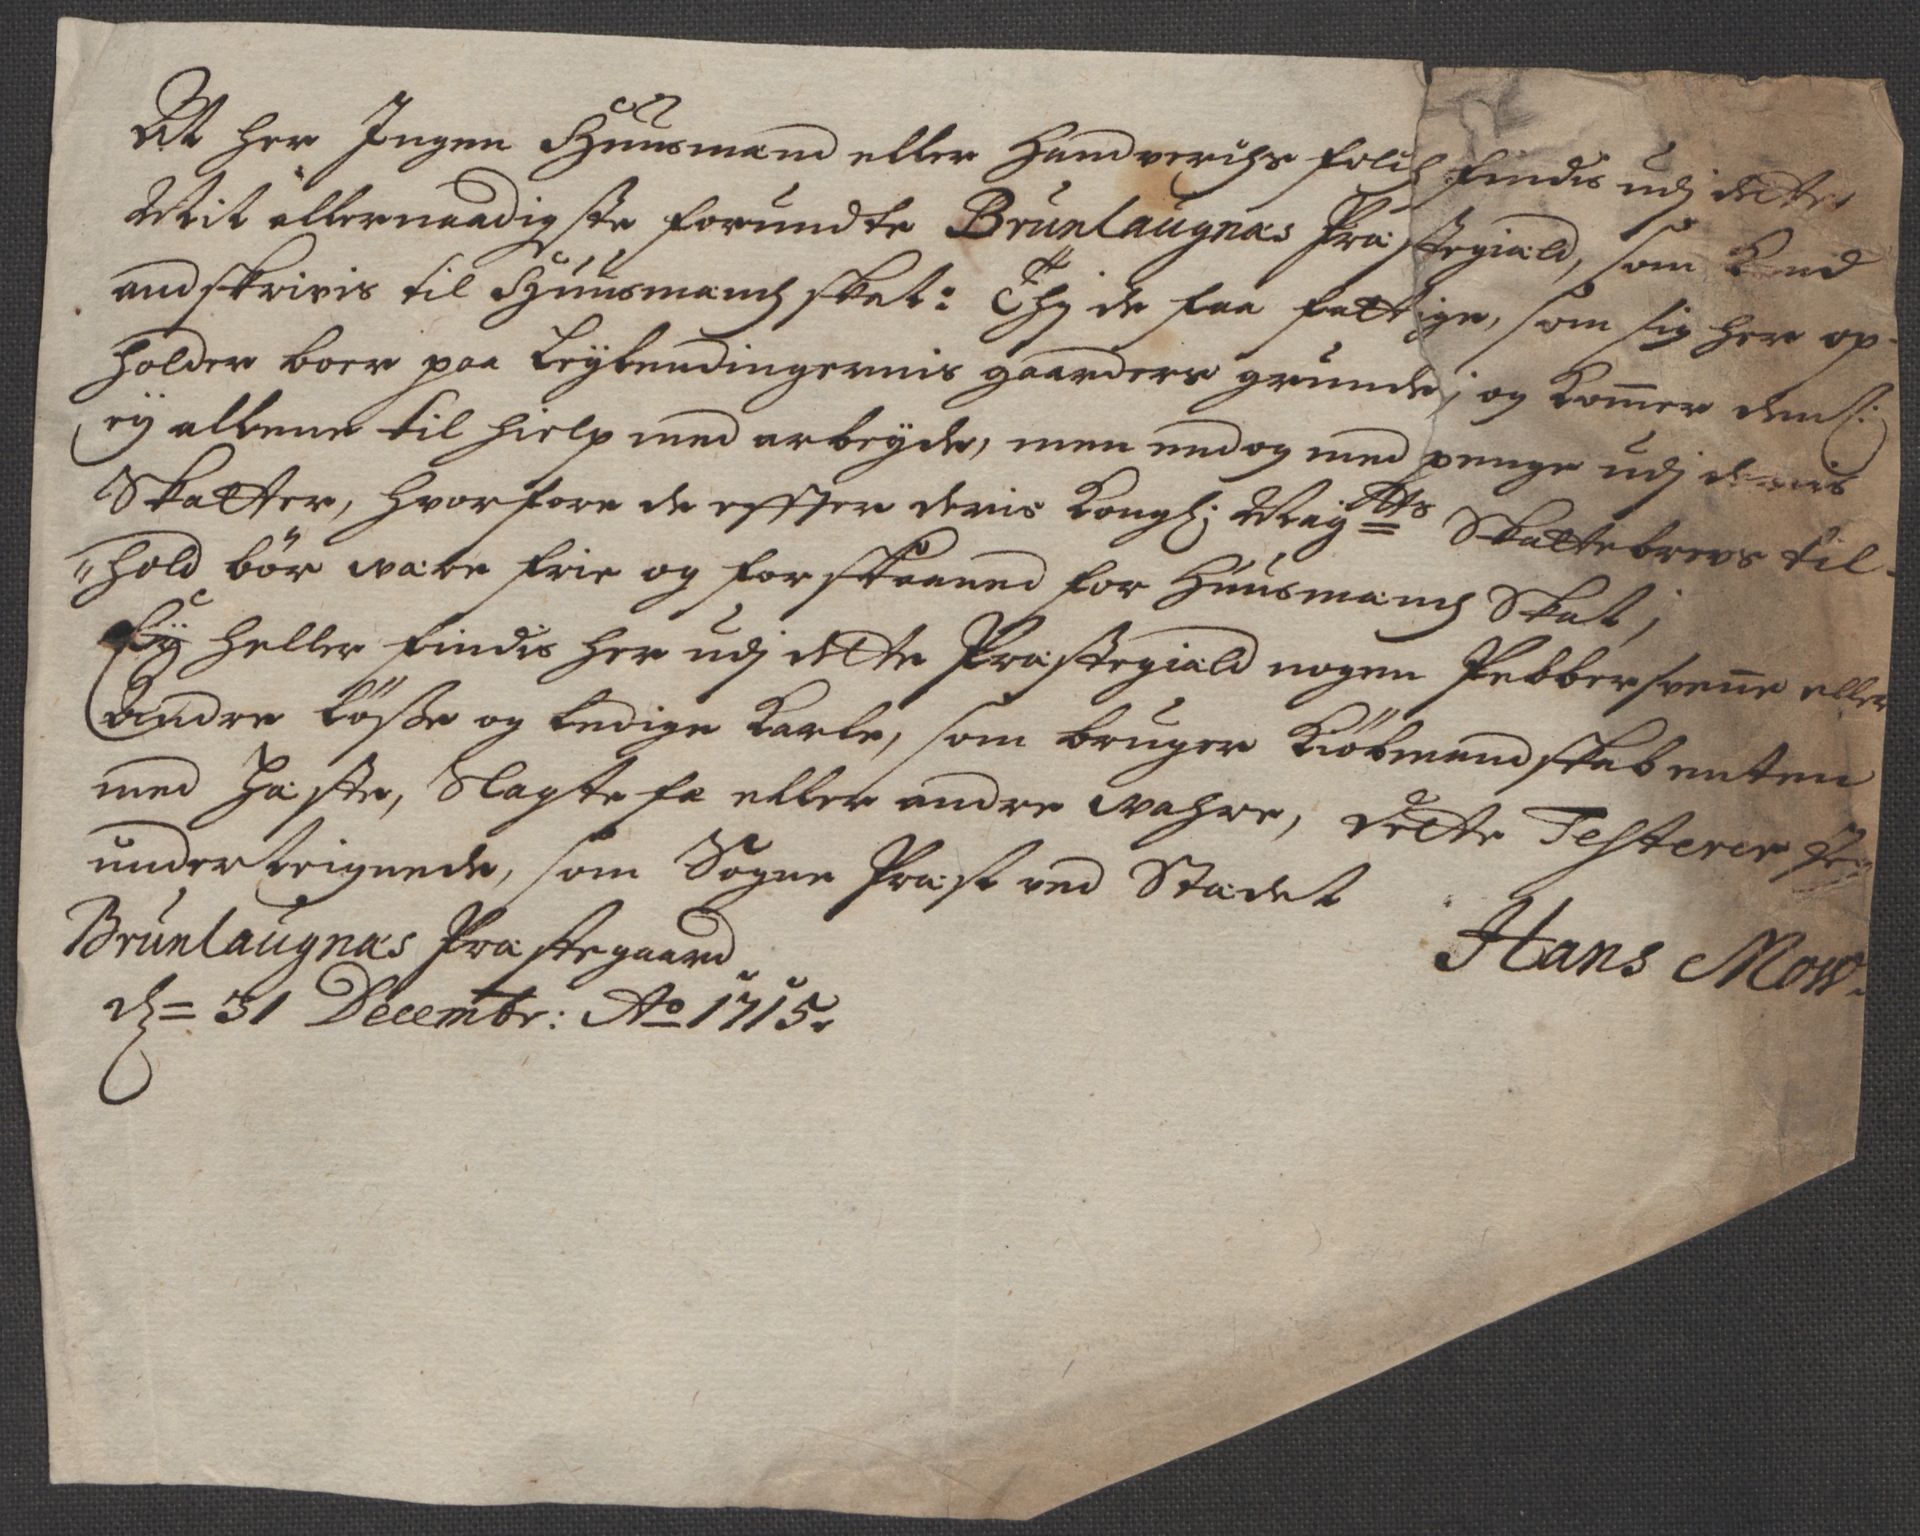 At her Ingen Huusmænd eller Handverchs folch findis udj dette
Mit allernaadigste forundte Brunlaugnæs Præstegiæld, som kand
andskrivis til Huusmænds skat: Thj de faa fattige, som sig her op-
holder boer paa Leylendingernis gaarders grunde, og kom̅er dem
ey alleene til hielp med arbeyde, men endog med penge udj deris
Skatter, hvorfore de effter deris Kongl: Mayᵗᵗˢ Skattebrevs til-
"hold bör være frie og forskaaned for Huusmænds Skat,
Ey heller findis her udj dette Præstegiæld nogen Pebbersven̅e eller
Andre lösse og ledige Karle, som bruger Kiöbmandskab enten
med Hæste, Slagte fæ eller andre wahre, dette Testerer
underteignede, som Sogne Præst ved Stædet
Brunlaugnæs Præstegaard
d= 31 Decembr: Ao 1715.
Hans Mow.